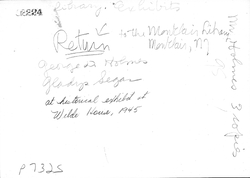 6824
Library Exhibits
Return to the Montclair Library
Montclair, NJ
George A. Holmes
Gladys Segar
at historical exhibit at
Wilde House, 1945
P 732S
Mrs Holmes 3 copies